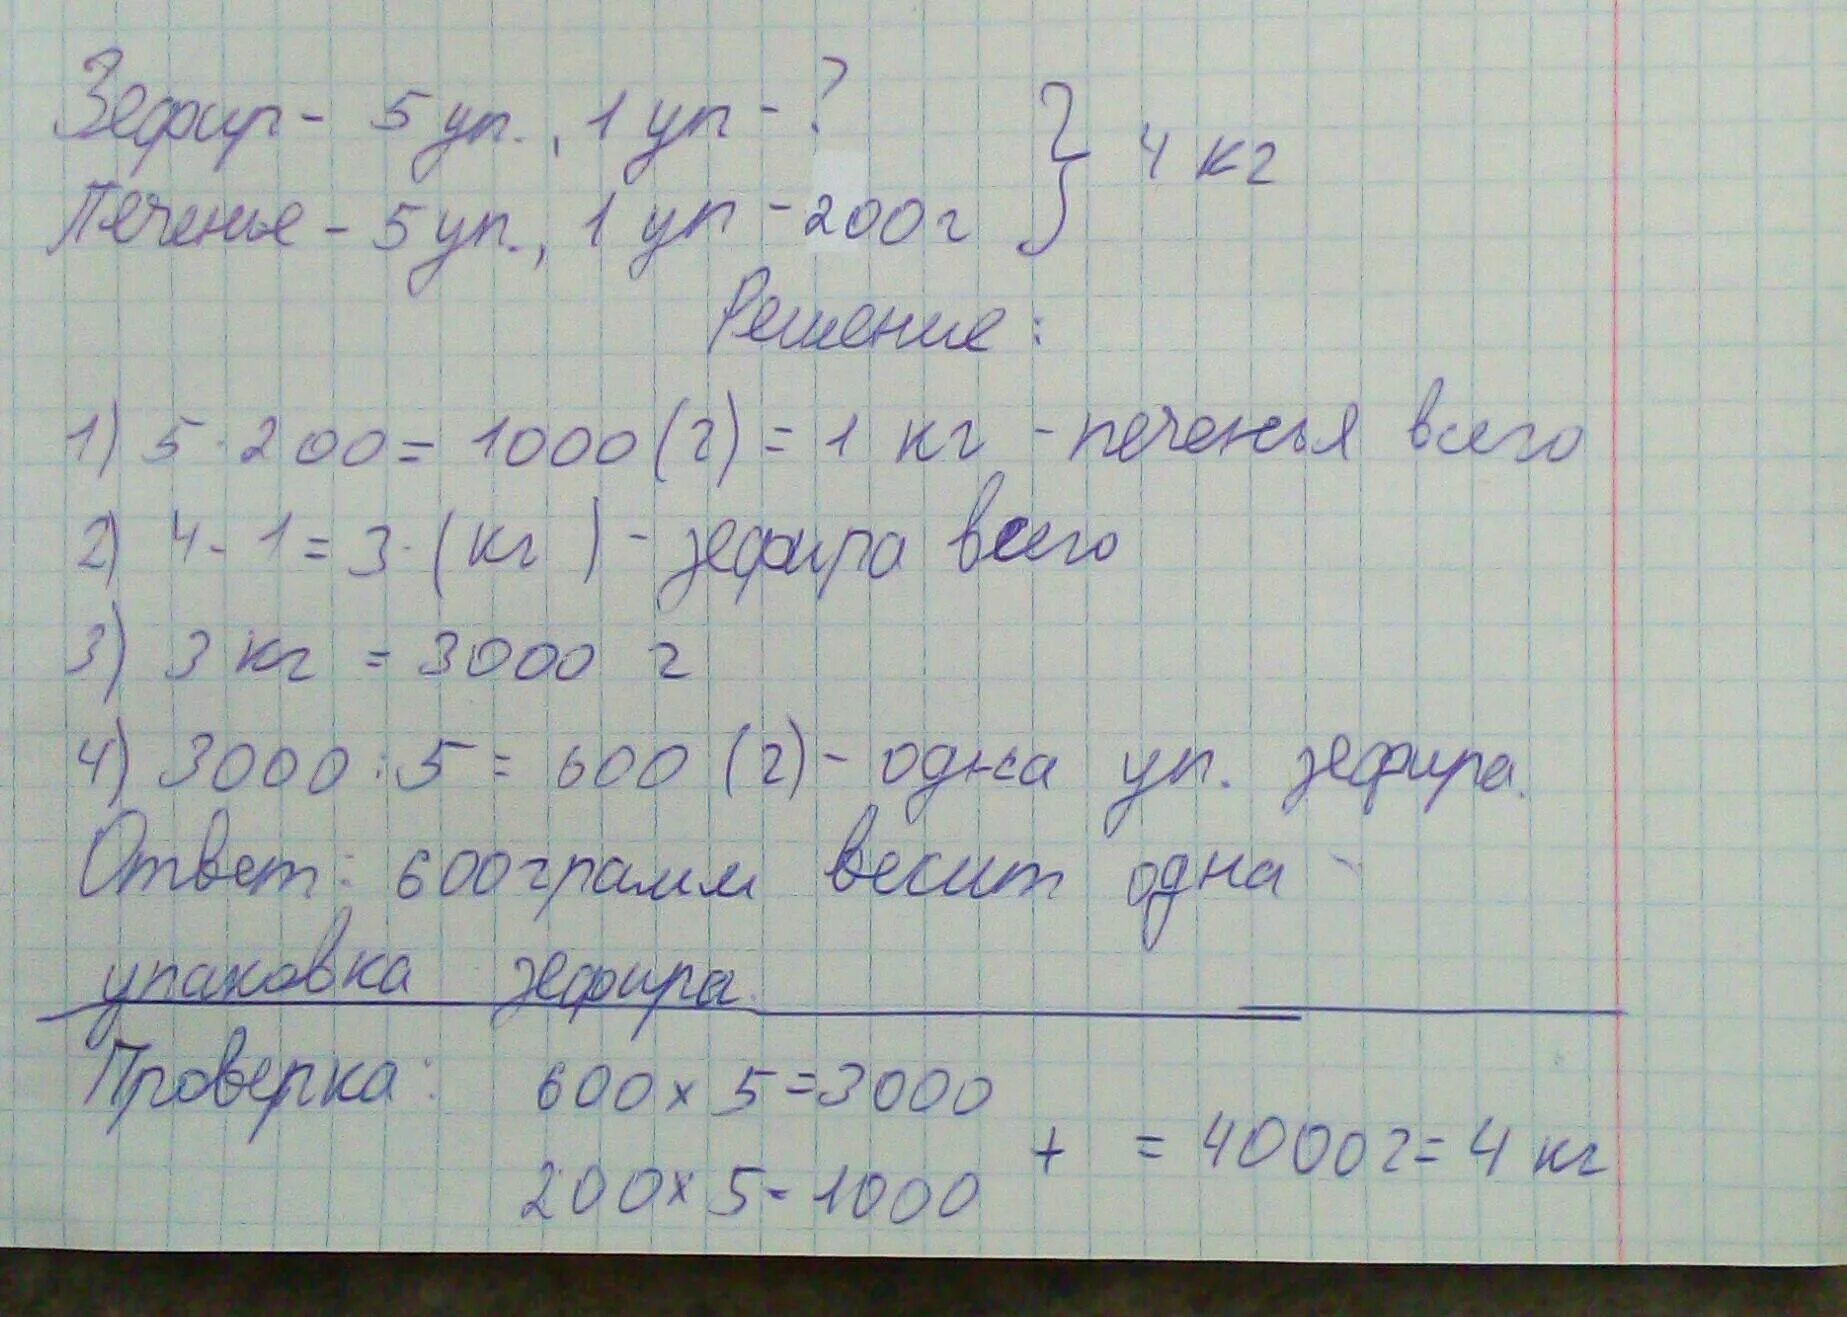 Зефир - 5 уп., 1 уп - ?
Печенье - 5 уп., 1 уп - 200 г } 4 кг
Решение:
1) 5 · 200 = 1000 (г) = 1 кг - печенья всего
2) 4 - 1 = 3 (кг) - зефира всего
3) 3 кг = 3000 г
4) 3000 : 5 = 600 (г) - одна уп. зефира.
Ответ: 600 грамм весит одна
упаковка зефира.
Проверка: 600 x 5 = 3000
+ = 4000 г = 4 кг
200 x 5 = 1000